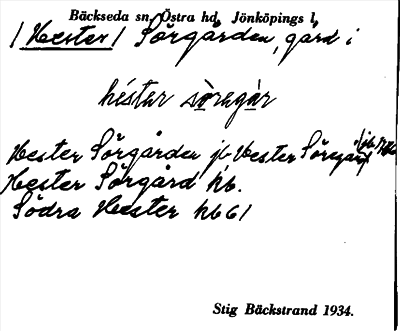 Bäckseda sn, Östra hd, Jönköpings l,
/Hester/ Sörgården, gård i
héstar sòragàr
Hester Sörgården jb Hester Söregård
Hester Sörgård kb.
Södra Hester kb 61
Stig Bäckstrand 1934.